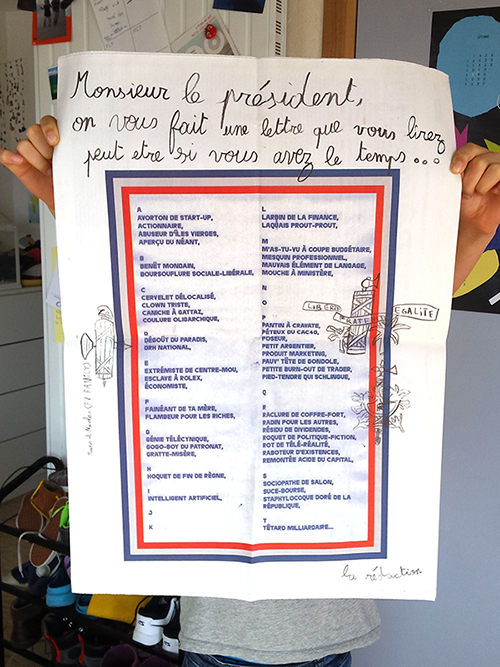 Monsieur le président,
on vous fait une lettre que vous lirez
peut etre si vous avez le temps...
A
AVORTON DE START-UP,
ACTIONNAIRE,
ABUSEUR D'ÎLES VIERGES,
APERÇU DU NÉANT,
B
BENÊT MONDAIN,
BOURSOUFLURE SOCIALE-LIBÉRALE,
C
CERVELET DÉLOCALISÉ,
CLOWN TRISTE,
CANICHE À GATTAZ,
COULURE OLIGARCHIQUE,
D
DÉGOÛT DU PARADIS,
DRH NATIONAL,
E
EXTRÉMISTE DE CENTRE-MOU,
ESCLAVE À ROLEX,
ÉCONOMISTE,
F
FAINÉANT DE TA MÈRE,
FLAMBEUR POUR LES RICHES,
G
GÉNIE TÉLÉCYNIQUE,
GOGO-BOY DU PATRONAT,
GRATTE-MISÈRE,
H
HOQUET DE FIN DE RÈGNE,
I
INTELLIGENT ARTIFICIEL,
J
K
L
LARBIN DE LA FINANCE,
LAQUAIS PROUT-PROUT,
M
M'AS-TU-VU À COUPE BUDGÉTAIRE,
MESQUIN PROFESSIONNEL,
MAUVAIS ÉLÉMENT DE LANGAGE,
MOUCHE À MINISTÈRE,
N
O
P
PANTIN À CRAVATE,
PÉTEUX DU CAC40,
POSEUR,
PETIT ARGENTIER,
PRODUIT MARKETING,
PAUV' TÊTE DE GONDOLE,
PETITE BURN-OUT DE TRADER,
PIED-TENDRE QUI SCHLINGUE,
Q
R
RACLURE DE COFFRE-FORT,
RADIN POUR LES AUTRES,
RÉSIDU DE DIVIDENDES,
ROQUET DE POLITIQUE-FICTION,
ROT DE TÉLÉ-RÉALITÉ,
RABOTEUR D'EXISTENCES,
REMONTÉE ACIDE DU CAPITAL,
S
SOCIOPATHE DE SALON,
SUCE-BOURSE,
STAPHYLOCOQUE DORÉ DE LA
RÉPUBLIQUE,
T
TÊTARD MILLIARDAIRE...
LIBERTE
EGALITE
la rédaction